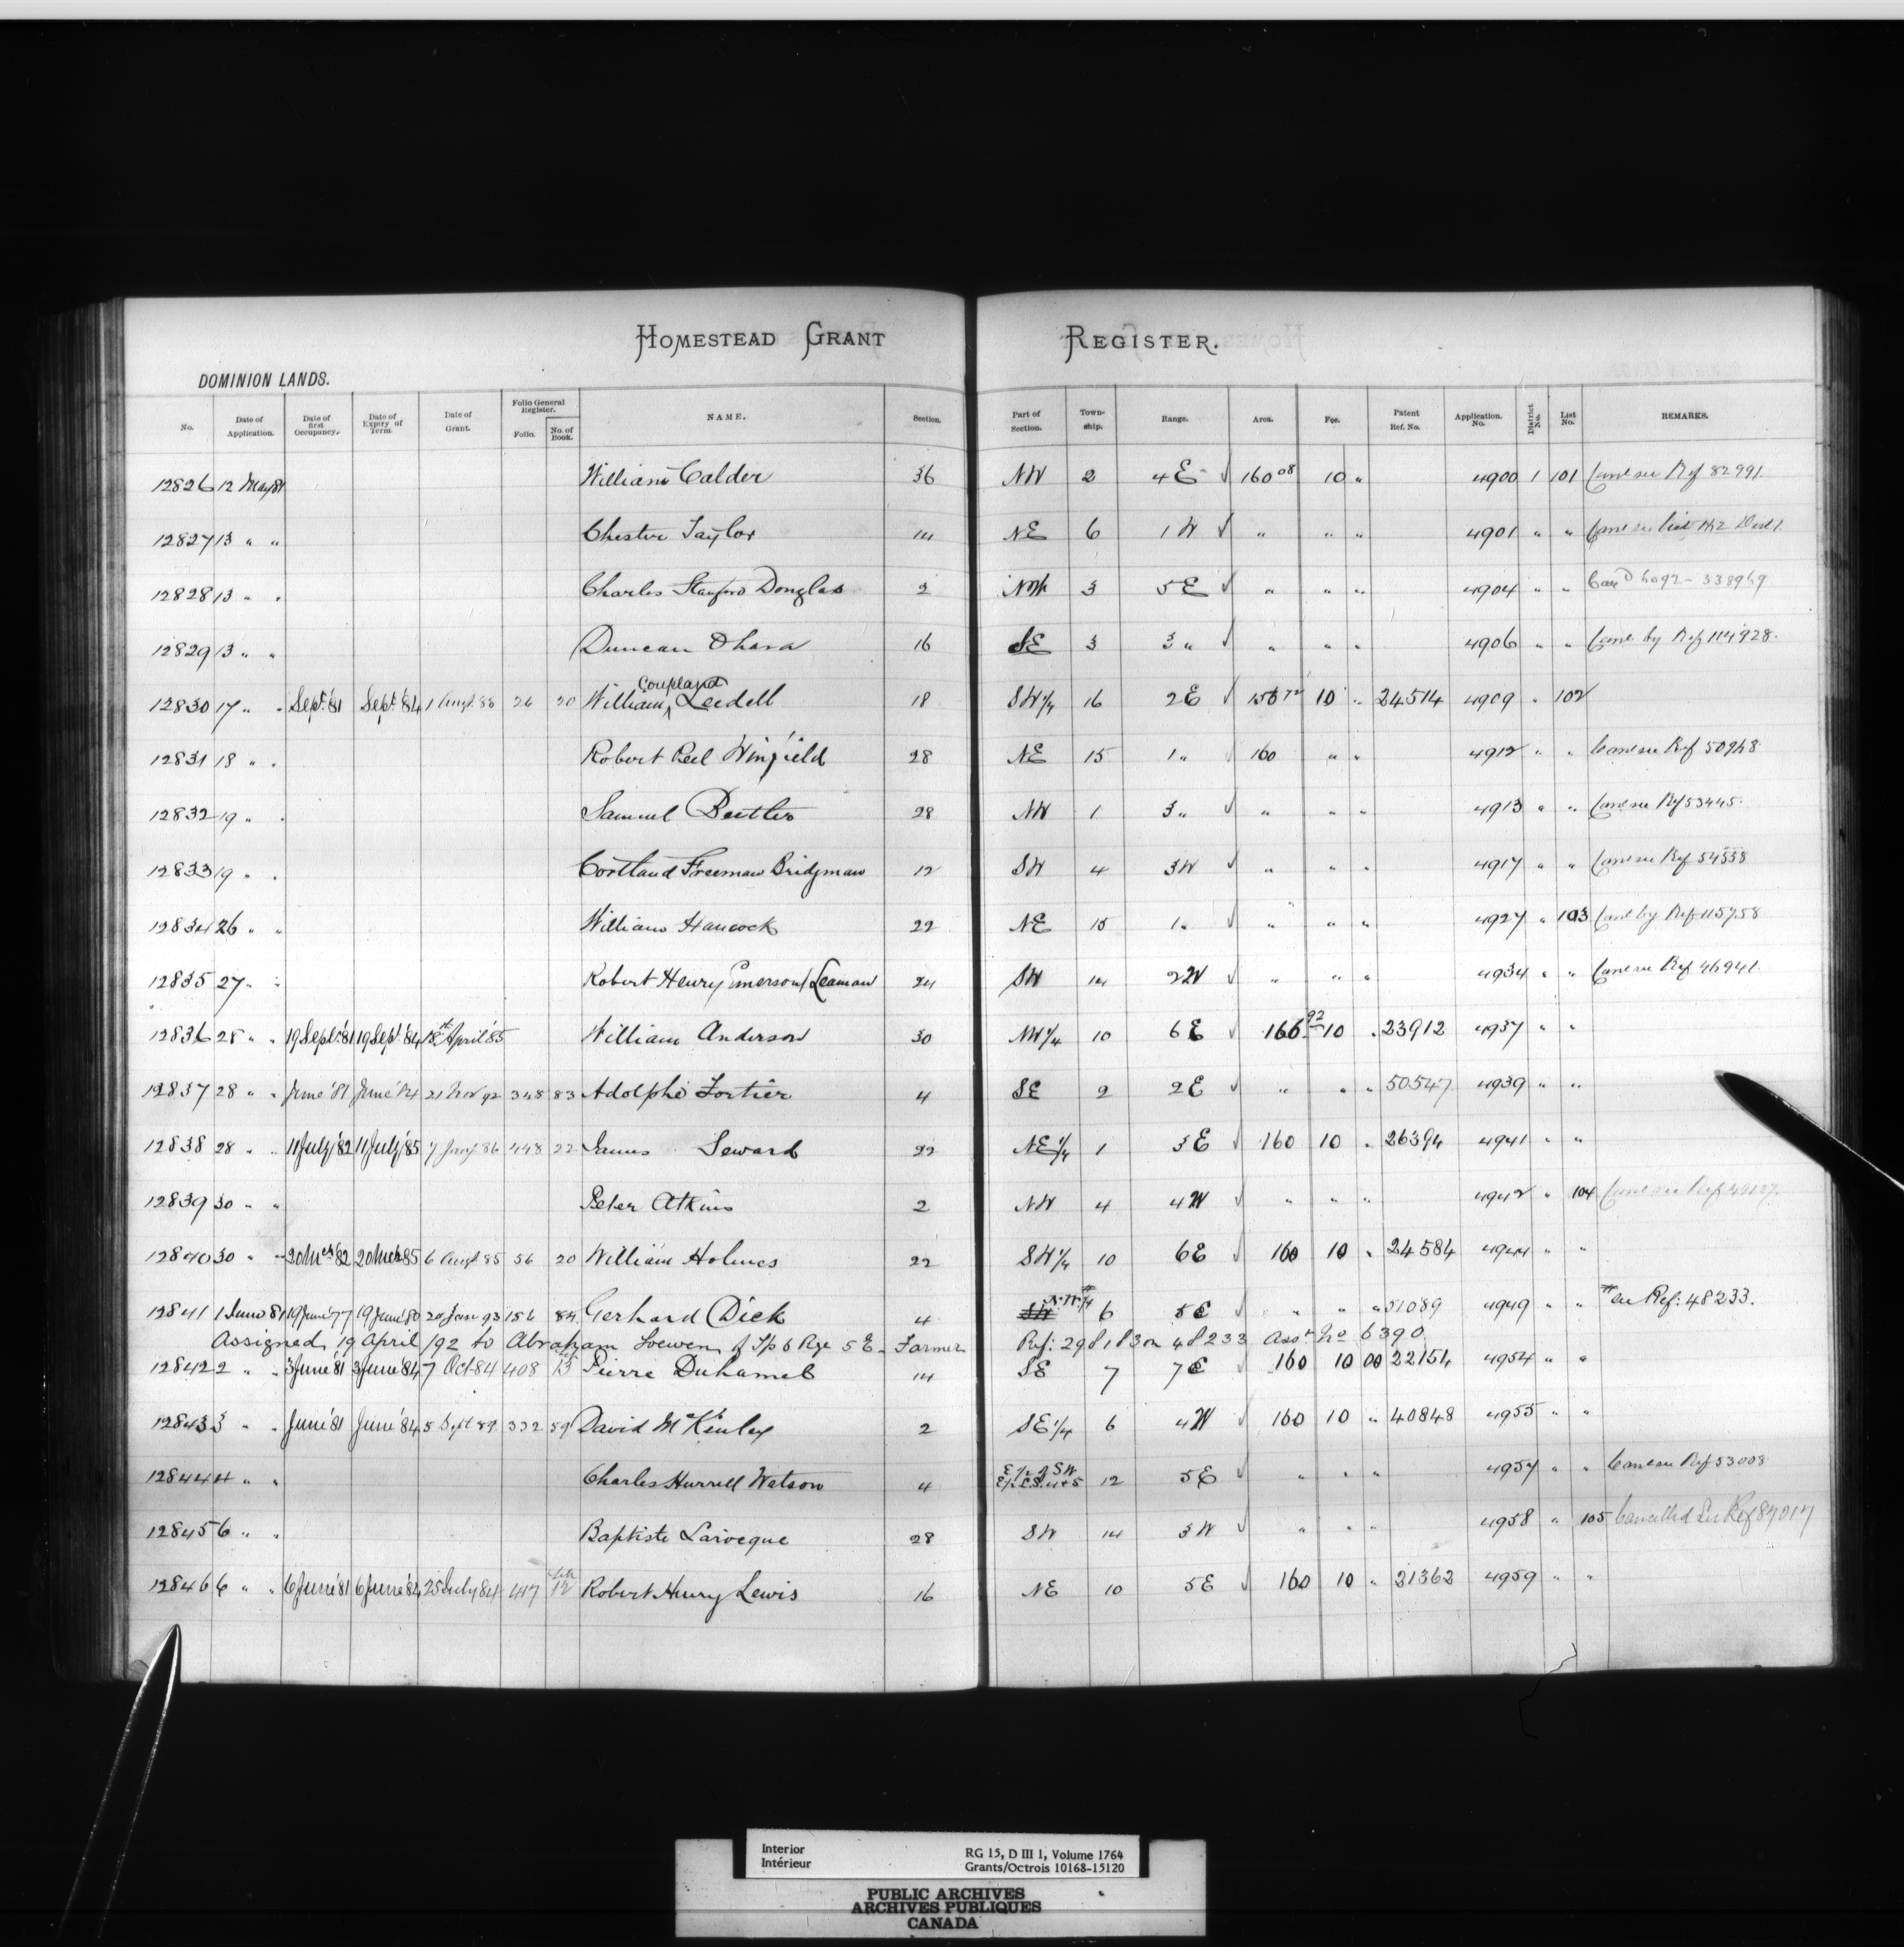 HOMESTEAD GRANT REGISTER.
DOMINION LANDS.
No. Date of Application. Date of first Occupancy. Date of Expiry of Term. Date of Grant. Folio General Register. Folio. No. of Book. NAME. Section. Part of Section. Town-ship. Range. Area. Fee. Patent Ref. No. Application. No. District No. List No. REMARKS.
12826 12 May 81 William Calder 36 NW 2 4E √ 160 08 10 " 4900 1 101 Canc see Ref 82991.
12827 13 " " Chester Taylor 14 NE 6 1 W √ " " " 4901 " " Canc see list 142 Dist 1
12828 13 " " Charles Stanford Douglas 2 NW 3 5E √ " " " 4904 " "
12829 13 " " Duncan Ohara 16 SE 3 3 " √ " " " 4906 " " Canc by Ref 114928.
12830 17 " " Sept. '81 Sept. '84 1 Augt 85 26 20 William Coupland Leedell 18 SW 1/4 16 2E √ 72 10 " 24514 4909 " 102
12831 18 " " Robert Reel Winfield 28 NE 15 1 " √ 160 " " 4912 " " Canc see Ref 50968
12832 19 " " Samuel 28 NW 1 3 " √ " " " 4913 " " Canc see Ref 53445.
12833 19 " " Cortland Freeman Bridgman 12 SW 4 3W √ " " " 4917 " " Canc see Ref 54558
12834 26 " " William Hancock 22 NE 15 1 " √ " " " 4927 " 103 Canc by Ref 115758
12835 27 " " Robert Henry Emerson Leaman 24 SW 14 2W √ " " " 4934 " " Canc see Ref 46941
12836 28 " " 19 Sept. '81 19 Sept. '84 18th April '85 William Anderson 30 NW 1/4 10 6E √ 166 92 10 " 23912 4937 " "
12837 28 " " June '81 June '84 21 Nov 92 348 83 Adolphe Fortier 4 SE 2 2E √ " " " 50547 4939 " "
12838 28 " " 11 July '82 11 July '85 7 Jany 86 448 22 James Seward 22 NE 1/4 1 3E √ 160 10 " 26394 4941 " "
12839 30 " " Peter Atkins 2 NW 4 4W √ " " " 4942 " 104 Canc see Ref
12840 30 " " 20 Mch '82 20 Mch 85 6 Augt 85 56 20 William Holmes 22 SW 1/4 10 6E √ 160 10 " 24584 4944 " "
12841 1 June 81 19 June '77 19 June '80 20 Jan 93 156 84 Gerhard Dick 4 SW N.W. 1/4 6 5E √ " " " 51089 4949 " " see Ref: 48233.
Assigned 19 April /92 to Abraham Loewen of Tp 6 Rge 5 E - Farmer Ref: 298183 on 48233 Asst No 6390
12842 2 " " 3 June '81 3 June '84 7 Oct 84 408 13 Pierre Duhamel 14 SE 7 7E 160 10 00 22154 4954 " "
12843 3 " " June '81 June '84 5 Sept 89 332 59 David McKinley 2 SE 1/4 6 4W √ 160 10 " 40848 4955 " "
12844 4 " " Charles Hurrell Watson 4 E 1/2 of SW E 1/2 L.S. 4 & 5 12 5E √ " " " 4957 " " Canc see Ref 53008
12845 6 " " Baptiste Larocque 28 SW 14 3W √ " " " 4958 " 105 Cancelled See Ref 87017
12846 6 " " 6 June '81 6 June '84 25 July 84 417 12 Robert Henry Lewis 16 NE 10 5E √ 160 10 " 21362 4959 " "
Interior
Intérieur
RG 15, D III 1, Volume 1764
Grants/Octrois 10168-15120
PUBLIC ARCHIVES
ARCHIVES PUBLIQUES
CANADA